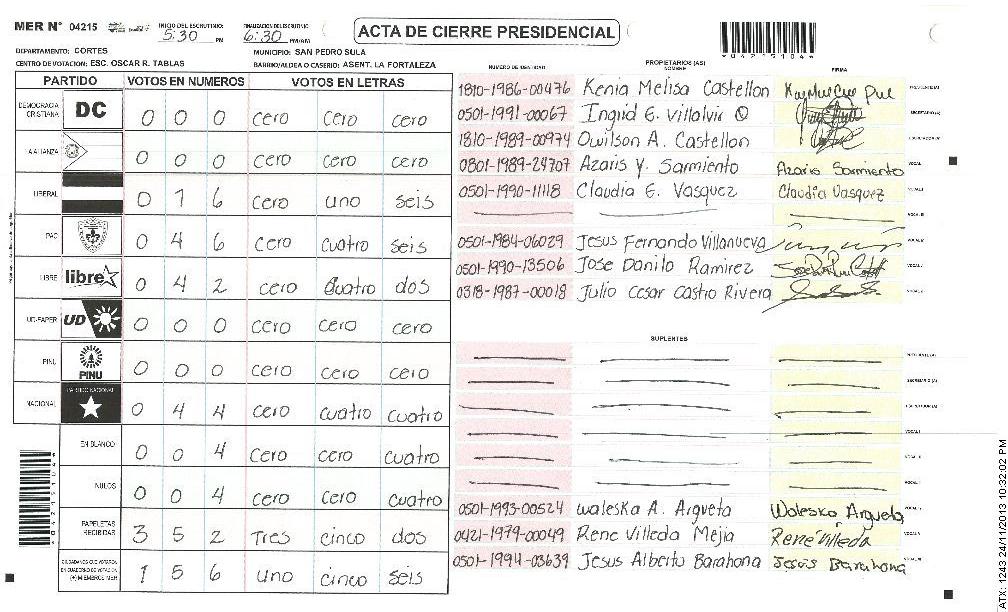 MER N° 04215 INICIO DEL ESCRUTINIO: 5:30 PM FINALIZACION DEL ESCRUTINIO: 6:30 PM/AM ACTA DE CIERRE PRESIDENCIAL *04215104*
DEPARTAMENTO: CORTES MUNICIPIO: SAN PEDRO SULA
CENTRO DE VOTACION: ESC. OSCAR R. TABLAS BARRIO/ALDEA O CASERIO: ASENT. LA FORTALEZA
PARTIDO VOTOS EN NUMEROS VOTOS EN LETRAS
DEMOCRACIA CRISTIANA DC 0 0 0 cero cero cero
ALIANZA 0 0 0 cero cero cero
LIBERAL 0 1 6 cero uno seis
PAC 0 4 6 cero cuatro seis
LIBRE libre 0 4 2 cero cuatro dos
UD-FAPER UD 0 0 0 cero cero cero
PINU PINU 0 0 0 cero cero cero
NACIONAL PARTIDO NACIONAL 0 4 4 cero cuatro cuatro
EN BLANCO 0 0 4 cero cero cuatro
NULOS 0 0 4 cero cero cuatro
PAPELETAS RECIBIDAS 3 5 2 Tres cinco dos
CIUDADANOS QUE VOTARON EN CUADERNO DE VOTACION (+) MIEMBROS MER 1 5 6 uno cinco seis
PROPIETARIOS (AS)
NUMERO DE IDENTIDAD NOMBRE FIRMA
1810-1986-00476 Kenia Melisa Castellon PRESIDENTE(A)
0501-1991-00067 Ingrid E. Villalvir SECRETARIO (A)
1810-1989-00974 Owilson A. Castellon ESCRUTADOR (A)
0801-1989-24707 Azaris Y. Sarmiento Azaris Sarmiento VOCAL I
0501-1990-11118 Claudia E. Vasquez Claudia Vasquez VOCAL II
VOCAL III
0501-1984-06029 Jesus Fernando Villanueva VOCAL IV
0501-1990-13506 Jose Danilo Ramirez VOCAL V
0318-1987-00018 Julio Cesar Castro Rivera VOCAL
SUPLENTES
PRESIDENTE (A)
SECRETARIO (A)
ESCRUTADOR (A)
VOCAL I
VOCAL II
VOCAL
0501-1993-00524 Waleska A. Argueta Waleska Argueta VOCAL
0421-1979-00049 Rene Villeda Mejia René Villeda VOCAL
0501-1994-03639 Jesus Alberto Barahona Jesús Barahona VOCAL
*04215104*
ATX: 1243 24/11/2013 10:32:02 PM